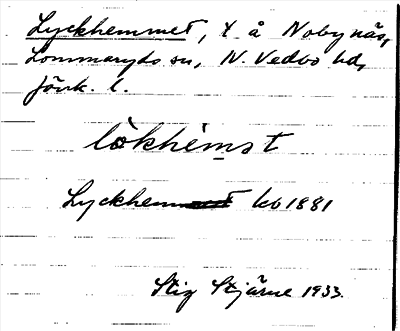 Lyckhemmet, t. å Noby näs,
Lommaryds sn, N. Vedbo hd,
Jönk. l.
lökhèmət
Lyckhem kb 1881
Stig Stjärne 1933.